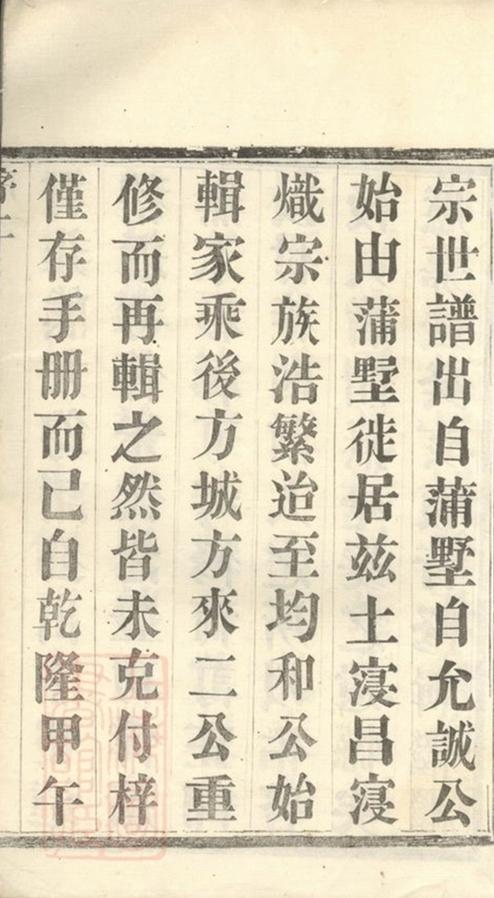 宗世譜出自蒲墅自允誠公
始由蒲墅徙居兹土寖昌寖
熾宗族浩繁迨至均和公始
輯家乘後方城方來二公重
修而再輯之然皆未克付梓
僅存手册而已自乾隆甲午